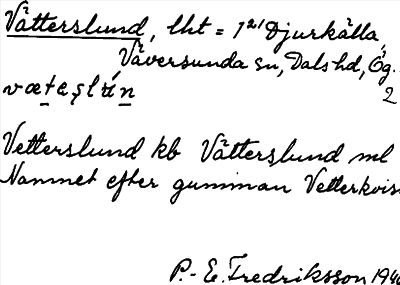 Vätterslund, lht = 1/21 Djurkälla,
Väversunda sn, Dals hd, Ög.
2
Vetterslund kb Vätterslund ml
Namnet efter gumman Vetterkvist
P.-E. Fredriksson 1940